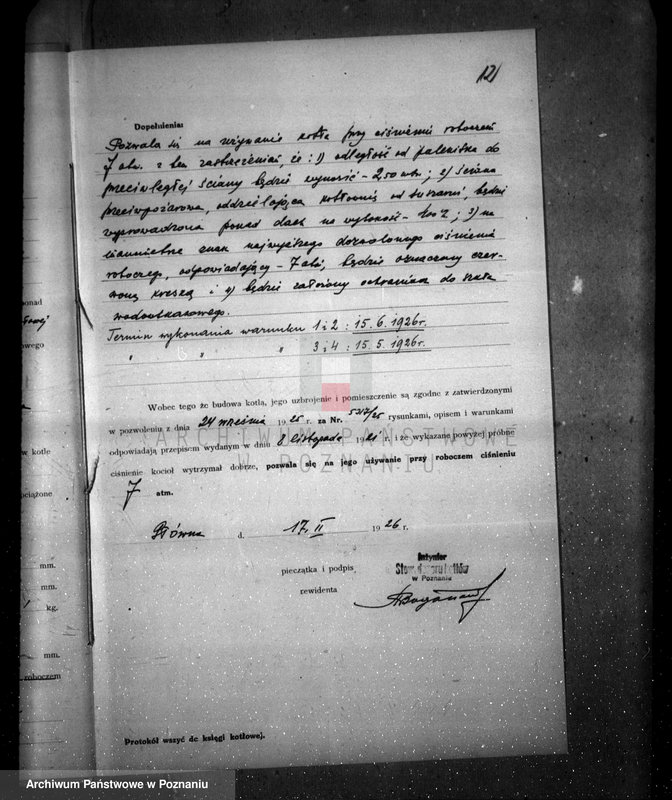 121
Dopełnienia:
Pozwala się na używanie kotła przy ciśnieniu roboczem
7 atm. z tem zastrzeżeniem, że: 1) odległość od paleniska do
przeciwległej ściany będzie wynosić - 2,50 mtr; 2) ściana
przeciwpożarowa, oddzielająca kotłownię od suszarni, będzie
wyprowadzona ponad dach na wysokość - ; 3) na
manometrze znak najwyższego dozwolonego ciśnienia
roboczego, odpowiadający - 7 atm, będzie oznaczony czer-
woną kreską i 4) będzie założony ochraniacz do szkła
wodowskazowego.
Termin wykonania warunku 1 i 2 : 15.6.1926 r.
" " " 3 i 4 : 15.5.1926 r.
Wobec tego że budowa kotła, jego uzbrojenie i pomieszczenie są zgodne z zatwierdzonymi
w pozwoleniu z dnia 24 września 1925 r. za Nr. 5217/25 rysunkami, opisem i warunkami
odpowiadają przepisom wydanym w dniu 8 listopada 1921 r. i że wykazane powyżej próbne
ciśnienie kocioł wytrzymał dobrze, pozwala się na jego używanie przy roboczem ciśnieniu
7 atm.
Główna d. 17.II 1926 r.
pieczątka i podpis
rewidenta
Inżynier
Stow. dozoru kotłów
w Poznaniu
Protokół wszyć do księgi kotłowej.
ponad
owego
w kotle
ociążone
mm.
mm.
kg.
mm.
roboczem
ARCHIWUM PAŃSTWOWE
W POZNANIU
Archiwum Państwowe w Poznaniu